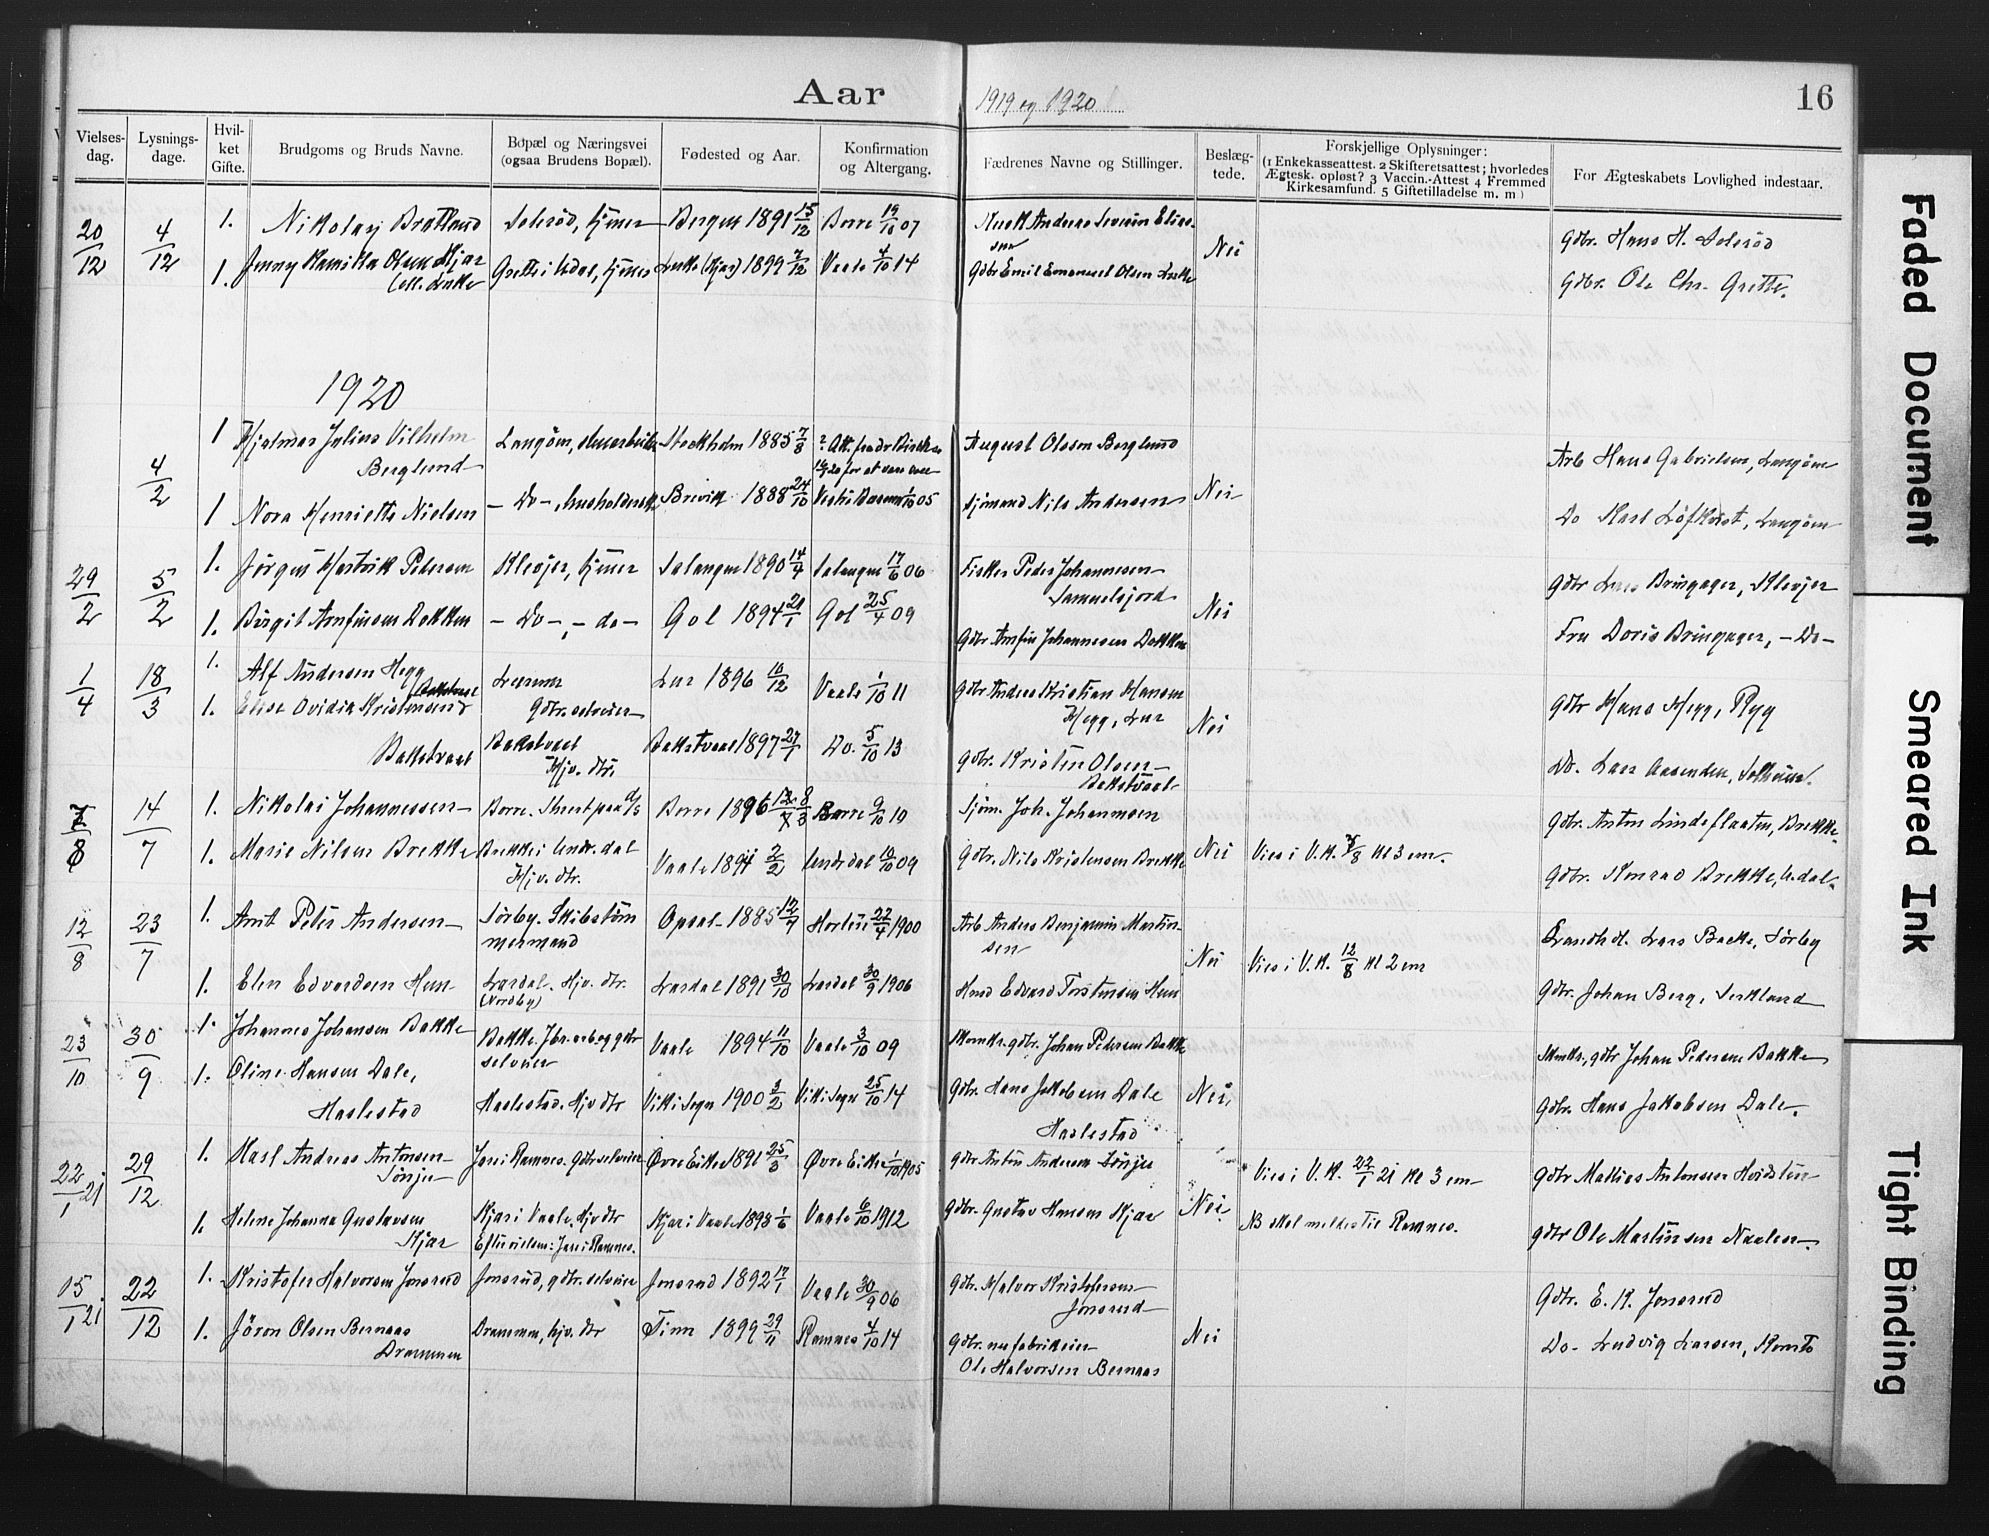 Aar
1919 og 1920
16
Vielses-dag.
Lysnings-dage.
Hvil-ket Gifte.
Brudgoms og Bruds Navne.
Bopæl og Næringsvei (ogsaa Brudens Bopæl).
Fødested og Aar.
Konfirmation og Altergang.
Fædrenes Navne og Stillinger.
Beslæg-tede.
Forskjellige Oplysninger: (1 Enkekasseattest. 2 Skifteretsattest; hvorledes Ægtesk. opløst? 3 Vaccin.-Attest 4 Fremmed Kirkesamfund. 5 Giftetilladelse m. m)
For Ægteskabets Lovlighed indestaar.
20/12 4/12 1. Nikolay Bratland Solerød, tjener Bergen 1891 15/12 Borre 19/10 07 Anders Severin Elias-sen Nei Gdbr. Hans H. Solerød
1. Jenny Kamilla Olsen Kjær Grette i Undrdal, tjener (Kjær) 1899 7/12 Vaale 4/10 14 Gdbr Emil Emanuel Olsen Gdbr. Ole Chr. Grette.
1920
4/2 1 Hjalmar Julius Vilhelm Berglund Langøen, Stockholm 1885 7/8 August Olsson Berglund Nei Arb Hans Gabrielsen, Langøen
1 Nora Henriette Nielsen – Do –, husholderske Brevik 1888 24/10 05 Sjømand Nils Andersen Do Karl Löfkvist, Langøen
29/2 5/2 1. Jørgen Hartvik Pedersen Kleojer, tjener Salangen 1890 14/4 Salangen 17/6 06 Fisker Peder Johannesen Samuelsjord Nei Gdbr Lars Bringager, Kleojer
1. Birgit Arnfinsen Dokken – Do –, – do – Gol 1894 21/1 Gol 25/4 09 Gdbr Arnfin Johannesen Dokken Fru Doris Bringager, – Do –
1/4 18/3 1. Alf Andersen Hegg Gdbr. selveier 1896 10/12 Vaale 1/10 11 Gdbr Anders Kristian Hansen Hegg, Nei Gdbr Hans Hegg, Ryg
1. Elise Ovidia Kristensen Bakstvaal Bakstvaal Hjv. dtr. Bakstvaal 1897 27/1 Do. 5/10 13 Gdbr. Kristen Olsen Bakstvaal Do. Lars Aasenden, Solheim.
7/8 14/7 1. Nikolai Johannessen Borre. paa d/s Borre 1896 8/3 Borre 9/10 10 Sjøm. Joh. Johannesen Nei Vies i V.K. 7/8 kl 3 em. Gdbr. Anton Lindeflaaten, Brekke
1. Marie Nilsen Brekke Brekke i Undr.dal Hjv. dtr. Vaale 1894 2/2 Undrdal 10/10 09 Gdbr. Nils Kristensen Brekke Gdbr. Konrad Brekke, U.dal.
12/8 23/7 1. Arnt Peter Andersen Sørby. Skibstøm-mermand Opsal 1885 12/7 Horten 22/4 1900 Arb Anders Benjamin Martin-sen Nei Vies i V.K. 12/8 kl 2 em Landh dl. Lars Backe, Sørby
1. Elen Edvardsen Hem Lardal. Hjv. dtr. (Nordby) Lardal 1891 30/10 Lardal 30/9 1906 Edvard Torstensen Hem Gdbr. Johan Berg, Serkland
23/10 30/9 1. Johannes Johansen Bakke Bakke. og gdbr selveier Vaale 1894 11/10 Vaale 3/10 09 Skomkr. gdbr. Johan Pedersen Bakke Nei. Skmkr., gdbr Johan Pedersen Bakke
1. Oline Hansen Dale, Haslestad Haslestad. Hjv dtr Vik i Sogn 1900 3/2 Vik i Sogn 25/10 14 Gdbr. Hans Jakobsen Dale Haslestad Gdbr. Hans Jakobsen Dale.
22/1 21 29/12 1. Karl Andreas Antonsen Sønju Jare i Ramnes. Gdbr selveier Øvre Eiker 1891 25/3 Øvre Eiker 1/10 1905 Gdbr Anton Andersen Sønju Nei. Vies i V.K. 22/1 21 kl 3 em Gdbr Mathias Antonsen Hvidsten
1. Helene Johanna Gustavsen Kjær Kjær i Vaale. Hjv dtr Efter vielsen: Jare i Ramnes. Kjær i Vaale 1893 1/6 Vaale 6/10 1912 Gdbr. Gustav Hansen Kjær NB skal meldes til Ramnes. Gdbr Ole Martinsen Naalen.
15/1 21 22/12 1. Kristofer Halvorsen Jonsrud Jonsrud, gdbr. selveier Jonsrud 1892 17/1 Vaale 30/9 06 Gdbr. Halvor Kristofersen Jonsrud Nei Gdbr. E. K. Jonsrud
1. Jøron Olsen Bernaas Drammen Drammen, hjv. dtr Tinn 1899 29/11 Ramnes 4/10 14 Gdbr. møbelfabrikeier Ole Halvorsen Bernaas Do. Ludvig Larsen, Komto
Faded Document
Smeared Ink
Tight Binding